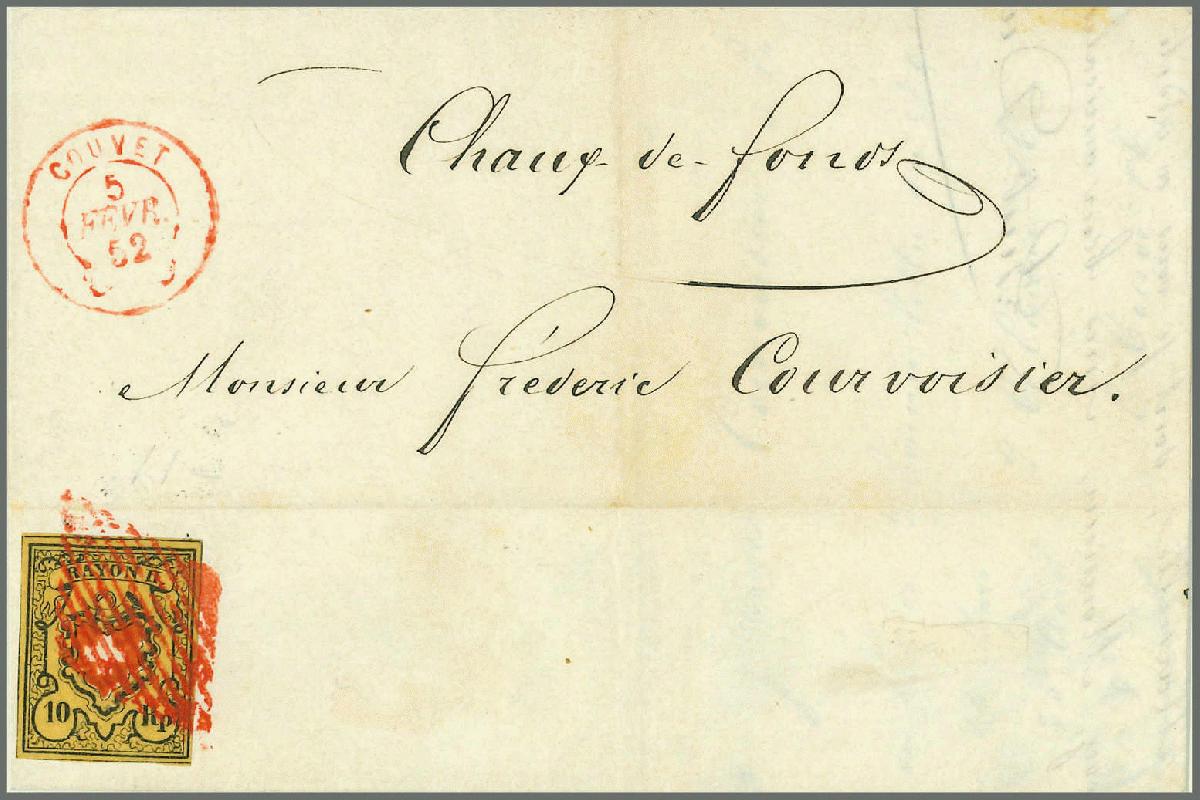 Chaux-de-fonds
COUVET
5
FEVR.
52
Monsieur fréderic Courvoisier.
RAYON II.
10 Rp